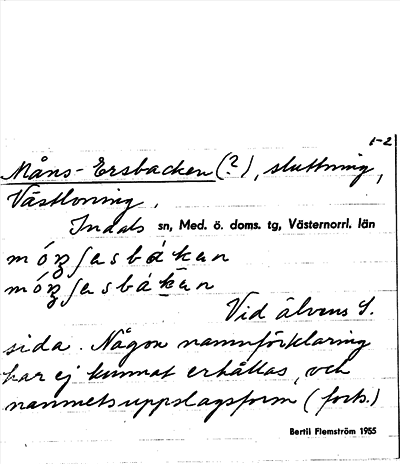 1-2
Måns-Ersbacken (?), sluttning,
Västloning.
Indals sn, Med. ö. doms. tg, Västernorrl. län
Vid älvens S.
sida. Någon namnförklaring
har ej kunnat erhållas, och
namnets uppslagsform (forts.)
Bertil Flemström 1955